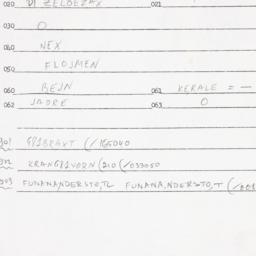 020 DI ZELDEZAX 021
030 O
040 NEX
050 FLOJMEN
060 BEJN 061 KERALE = —
062 JADRE 063 O
901 (/165040
902 (210 (/033050
903 FUNANANDERSTO,TL FUNANA,NDERSTO,T (/001